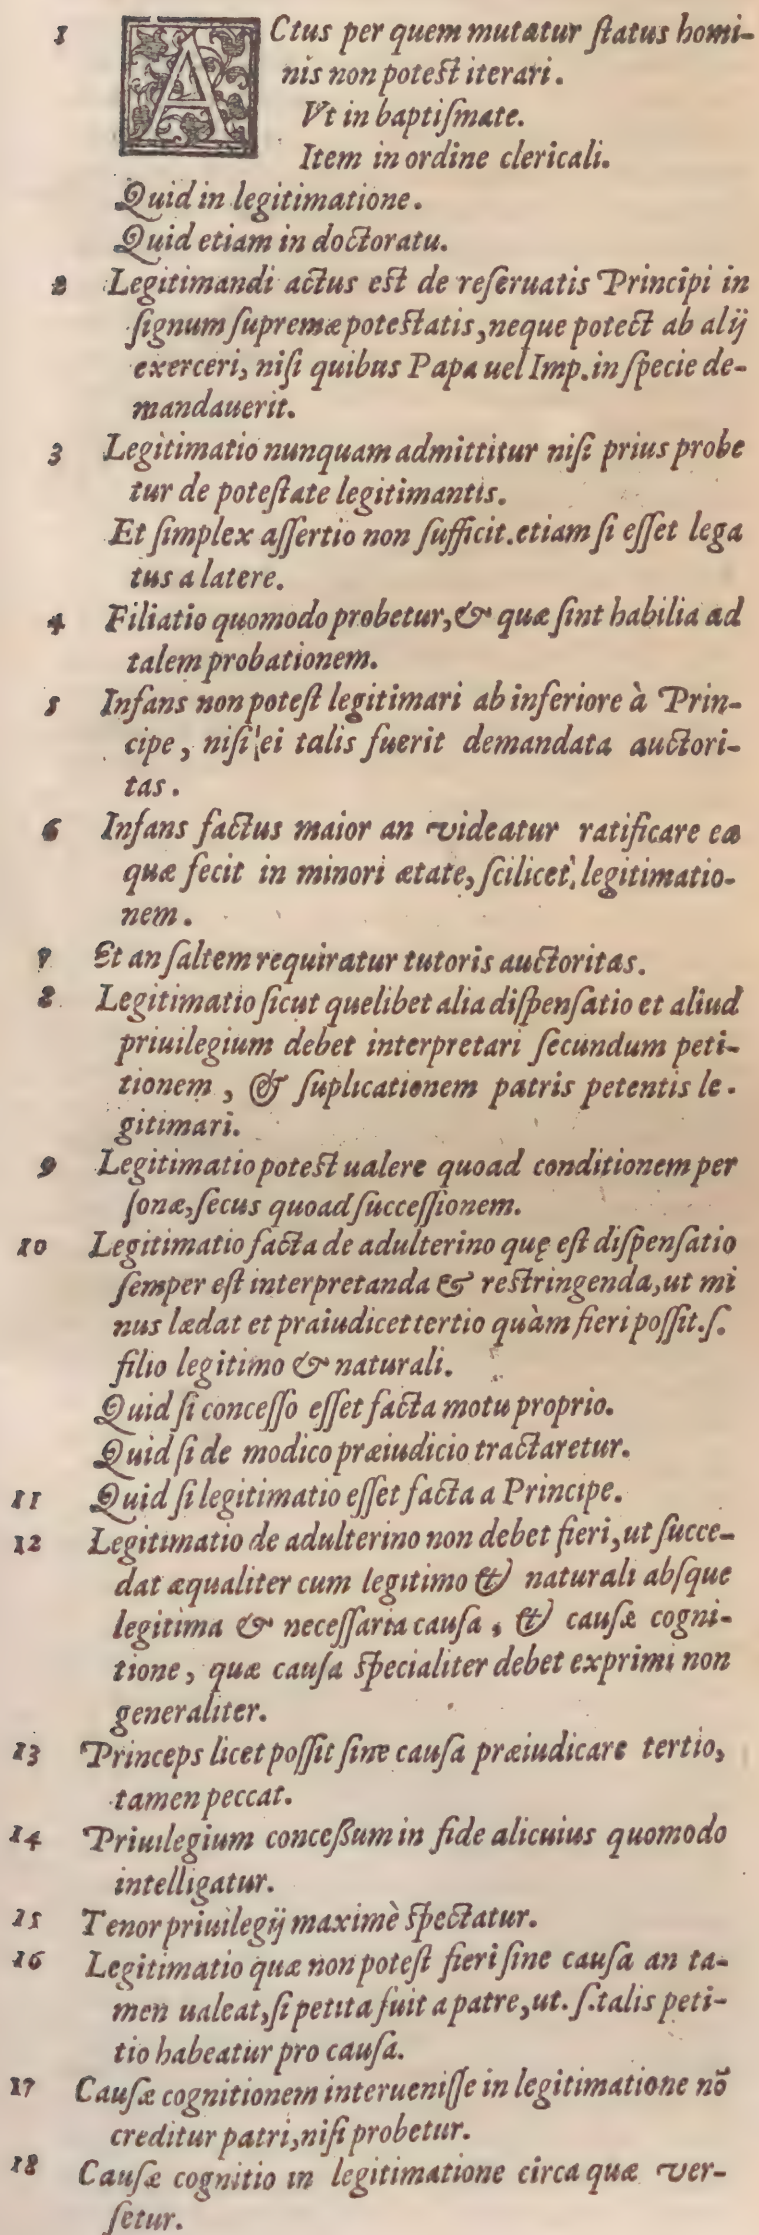 1 ACtus per quem mutatur ſtatus homi-
nis non poteſt iterari.
Vt in baptiſmate.
Item in ordine clericali.
Quid in legitimatione.
Quid etiam in doctoratu.
2 Legitimandi actus eſt de reſeruatis Principi in
ſignum ſupremæ poteſtatis, neque potect ab alij
exerceri, niſi quibus Papa uel Imp. in ſpecie de-
mandauerit.
3 Legitimatio nunquam admittitur niſi prius probe
tur de poteſtate legitimantis.
Et ſimplex aſſertio non ſufficit. etiam ſi eſſet lega
tus a latere.
4 Filiatio quomodo probetur, & quæ ſint habilia ad
talem probationem.
5 Infans non poteſt legitimari ab inferiore à Prin-
cipe, niſi ei talis fuerit demandata auctori-
tas.
6 Infans factus maior an videatur ratificare ea
quæ fecit in minori ætate, ſcilicet, legitimatio-
nem.
7 Et an ſaltem requiratur tutoris auctoritas.
8 Legitimatio ſicut quelibet alia diſpenſatio et aliud
priuilegium debet interpretari ſecundum peti-
tionem, & ſuplicationem patris petentis le-
gitimari.
9 Legitimatio poteſt ualere quoad conditionem per
ſonæ, ſecus quoad ſucceſſionem.
10 Legitimatio facta de adulterino quę eſt diſpenſatio
ſemper eſt interpretanda & reſtringenda, ut mi
nus lædat et praiudicet tertio quàm fieri poſſit. ſ.
filio legitimo & naturali.
Quid ſi conceſſo eſſet facta motu proprio.
Quid ſi de modico præiudicio tractaretur.
11 Quid ſi legitimatio eſſet facta a Principe.
12 Legitimatio de adulterino non debet fieri, ut ſucce-
dat æqualiter cum legitimo & naturali abſque
legitima & neceſſaria cauſa, & cauſæ cogni-
tione, quæ cauſa ſpecialiter debet exprimi non
generaliter.
13 Princeps licet poſſit ſine cauſa præiudicare tertio,
tamen peccat.
14 Priuilegium conceßum in fide alicuius quomodo
intelligatur.
15 Tenor priuilegij maximè ſpectatur.
16 Legitimatio quæ non poteſt fieri ſine cauſa an ta-
men ualeat, ſi petita fuit a patre, ut. ſ. talis peti-
tio habeatur pro cauſa.
17 Cauſæ cognitionem interueniſſe in legitimatione nō
creditur patri, niſi probetur.
18 Cauſæ cognitio in legitimatione circa quæ ver-
ſetur.